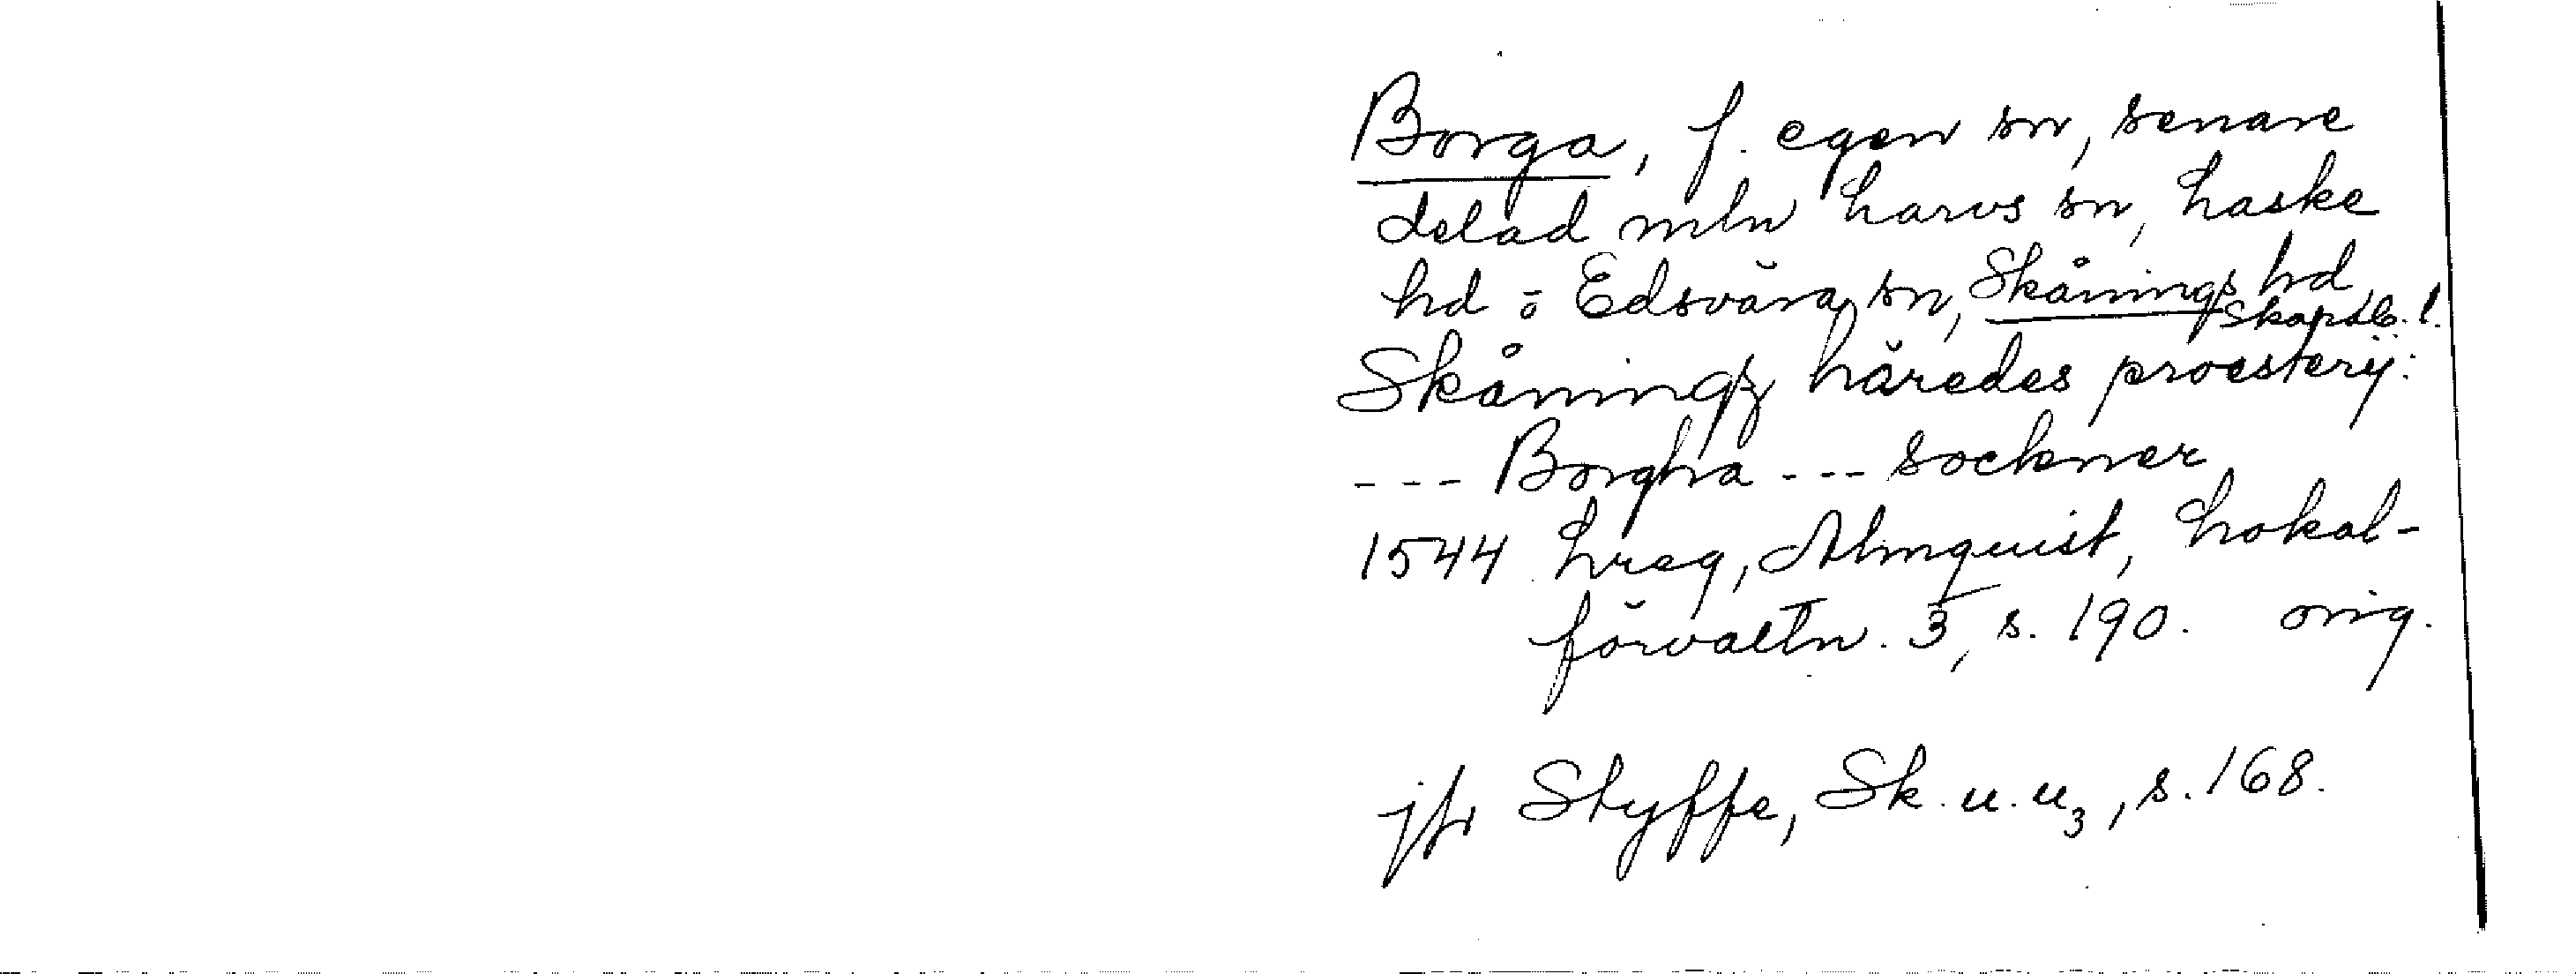 Borga, f. egen sn, senare
delad mln Larvs sn, Laske
hd o Edsvära sn, Skånings hd,
Skarab. l.
Skåningz häredes proesterij:
--- Borgha --- sockner
1544 Lreg, Almquist, Lokal-
förvaltn. 3, s. 190. orig.
jfr Styffe, Sk. u. u3, s. 168.